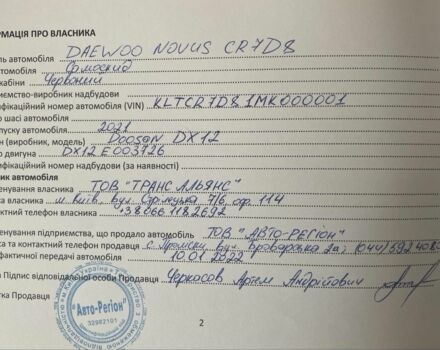 РМАЦІЯ ПРО ВЛАСНИКА
ль автомобіля DAEWOO NOVUS CR7D8
втомобіля
кабіни Червоний
риємство-виробник надбудови
тифікаційний номер автомобіля (VIN) KLTCR7D81MK000001
р шасі автомобіля
пуску автомобіля 2021
н (виробник, модель) DOOSAN DX12
р двигуна DX12E003726
тифікаційний номер надбудови (за наявності)
ник автомобіля
енування власника ТОВ "ТРАНС АЛЬЯНС"
а власника м. Київ, вул. 7/6, оф. 114
актний телефон власника +38066 1182692
енування підприємства, що продало автомобіль ТОВ "АВТО-РЕГІОН"
са та контактний телефон продавця вул. Броварська 2а; (044)
фактичної передачі автомобіля 10.01.2022
а Підпис відповідальної особи Продавця Черкасов Артем Андрійович
тка Продавця
"Авто-Регіон"
32982101
2